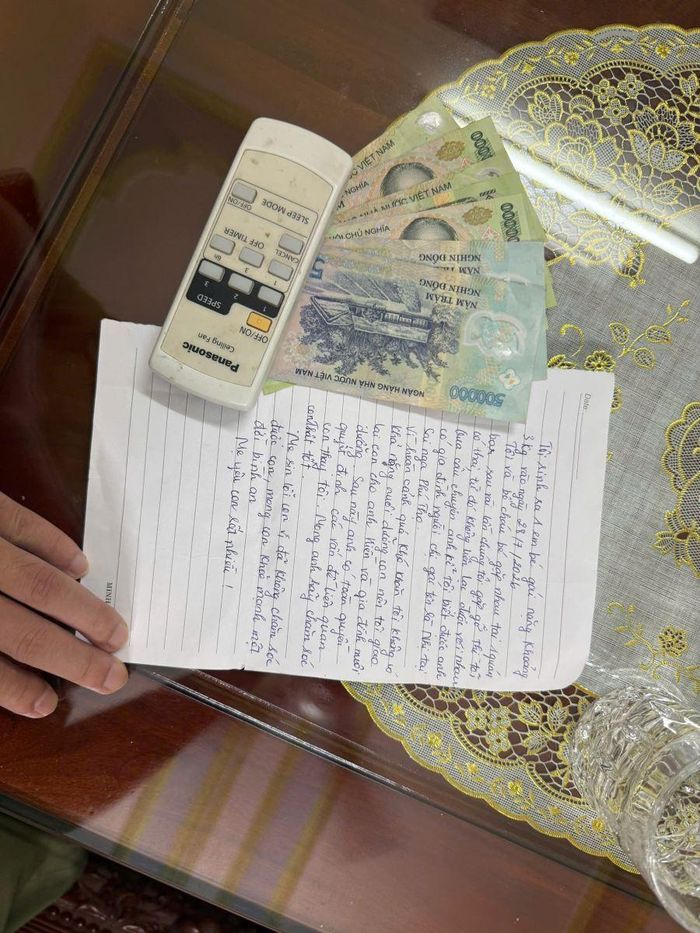 Date:
Tôi sinh ra 1 em bé gái nặng khoảng
3kg vào ngày 28/7/2026
Tôi và bố cháu bé gặp nhau tại 1 quán
bar, sau vài lần chúng tôi gặp gỡ thì tôi
có thai từ đó không liên lạc được với nhau
Qua câu chuyện anh kể tôi biết được anh
có gia đình người chị gái tên là Nhi tại
Sai Nga Phú Thọ
Vì hoàn cảnh quá khó khăn tôi không có
khả năng nuôi dưỡng con nên tôi giao
lại con cho anh Hiền và gia đình nuôi
dưỡng. Sau này anh có toàn quyền
quyết định các vấn đề liên quan
con thay tôi. Mong anh hãy chăm sóc
con thật tốt.
Mẹ xin lỗi con vì đã không chăm sóc
được con, mong con khoẻ mạnh một
đời bình an
Mẹ yêu con rất nhiều!
MINH
Panasonic
Ceiling Fan
OFF/ON
SPEED
1
2
3
1
3
6h
CANCEL
OFF TIMER
OFF/ON
SLEEP MODE
NGÂN HÀNG NHÀ NƯỚC VIỆT NAM
500000
NĂM TRĂM
NGHÌN ĐỒNG
NĂM TRĂM
NGHÌN ĐỒNG
CHỦ NGHĨA
NHÀ NƯỚC VIỆT NAM
NGHĨA
VIỆT NAM